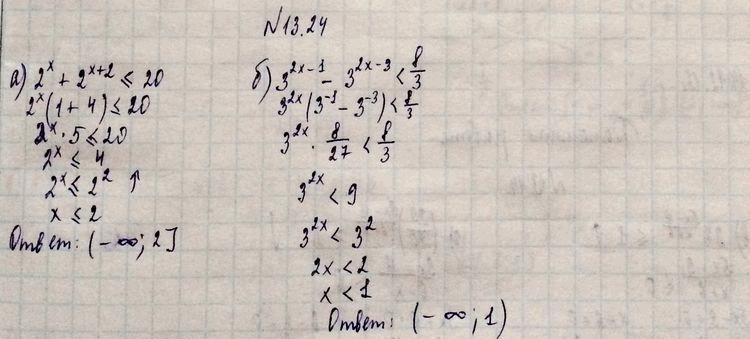 №13.24
а) 2^x + 2^{x+2} ≤ 20
2^x(1 + 4) ≤ 20
2^x · 5 ≤ 20
2^x ≤ 4
2^x ≤ 2^2 ↑
x ≤ 2
Ответ: (-∞; 2]
б) 3^{2x-1} - 3^{2x-3} < 8/3
3^{2x}(3^{-1} - 3^{-3}) < 8/3
3^{2x} · 8/27 < 8/3
3^{2x} < 9
3^{2x} < 3^2
2x < 2
x < 1
Ответ: (-∞; 1)